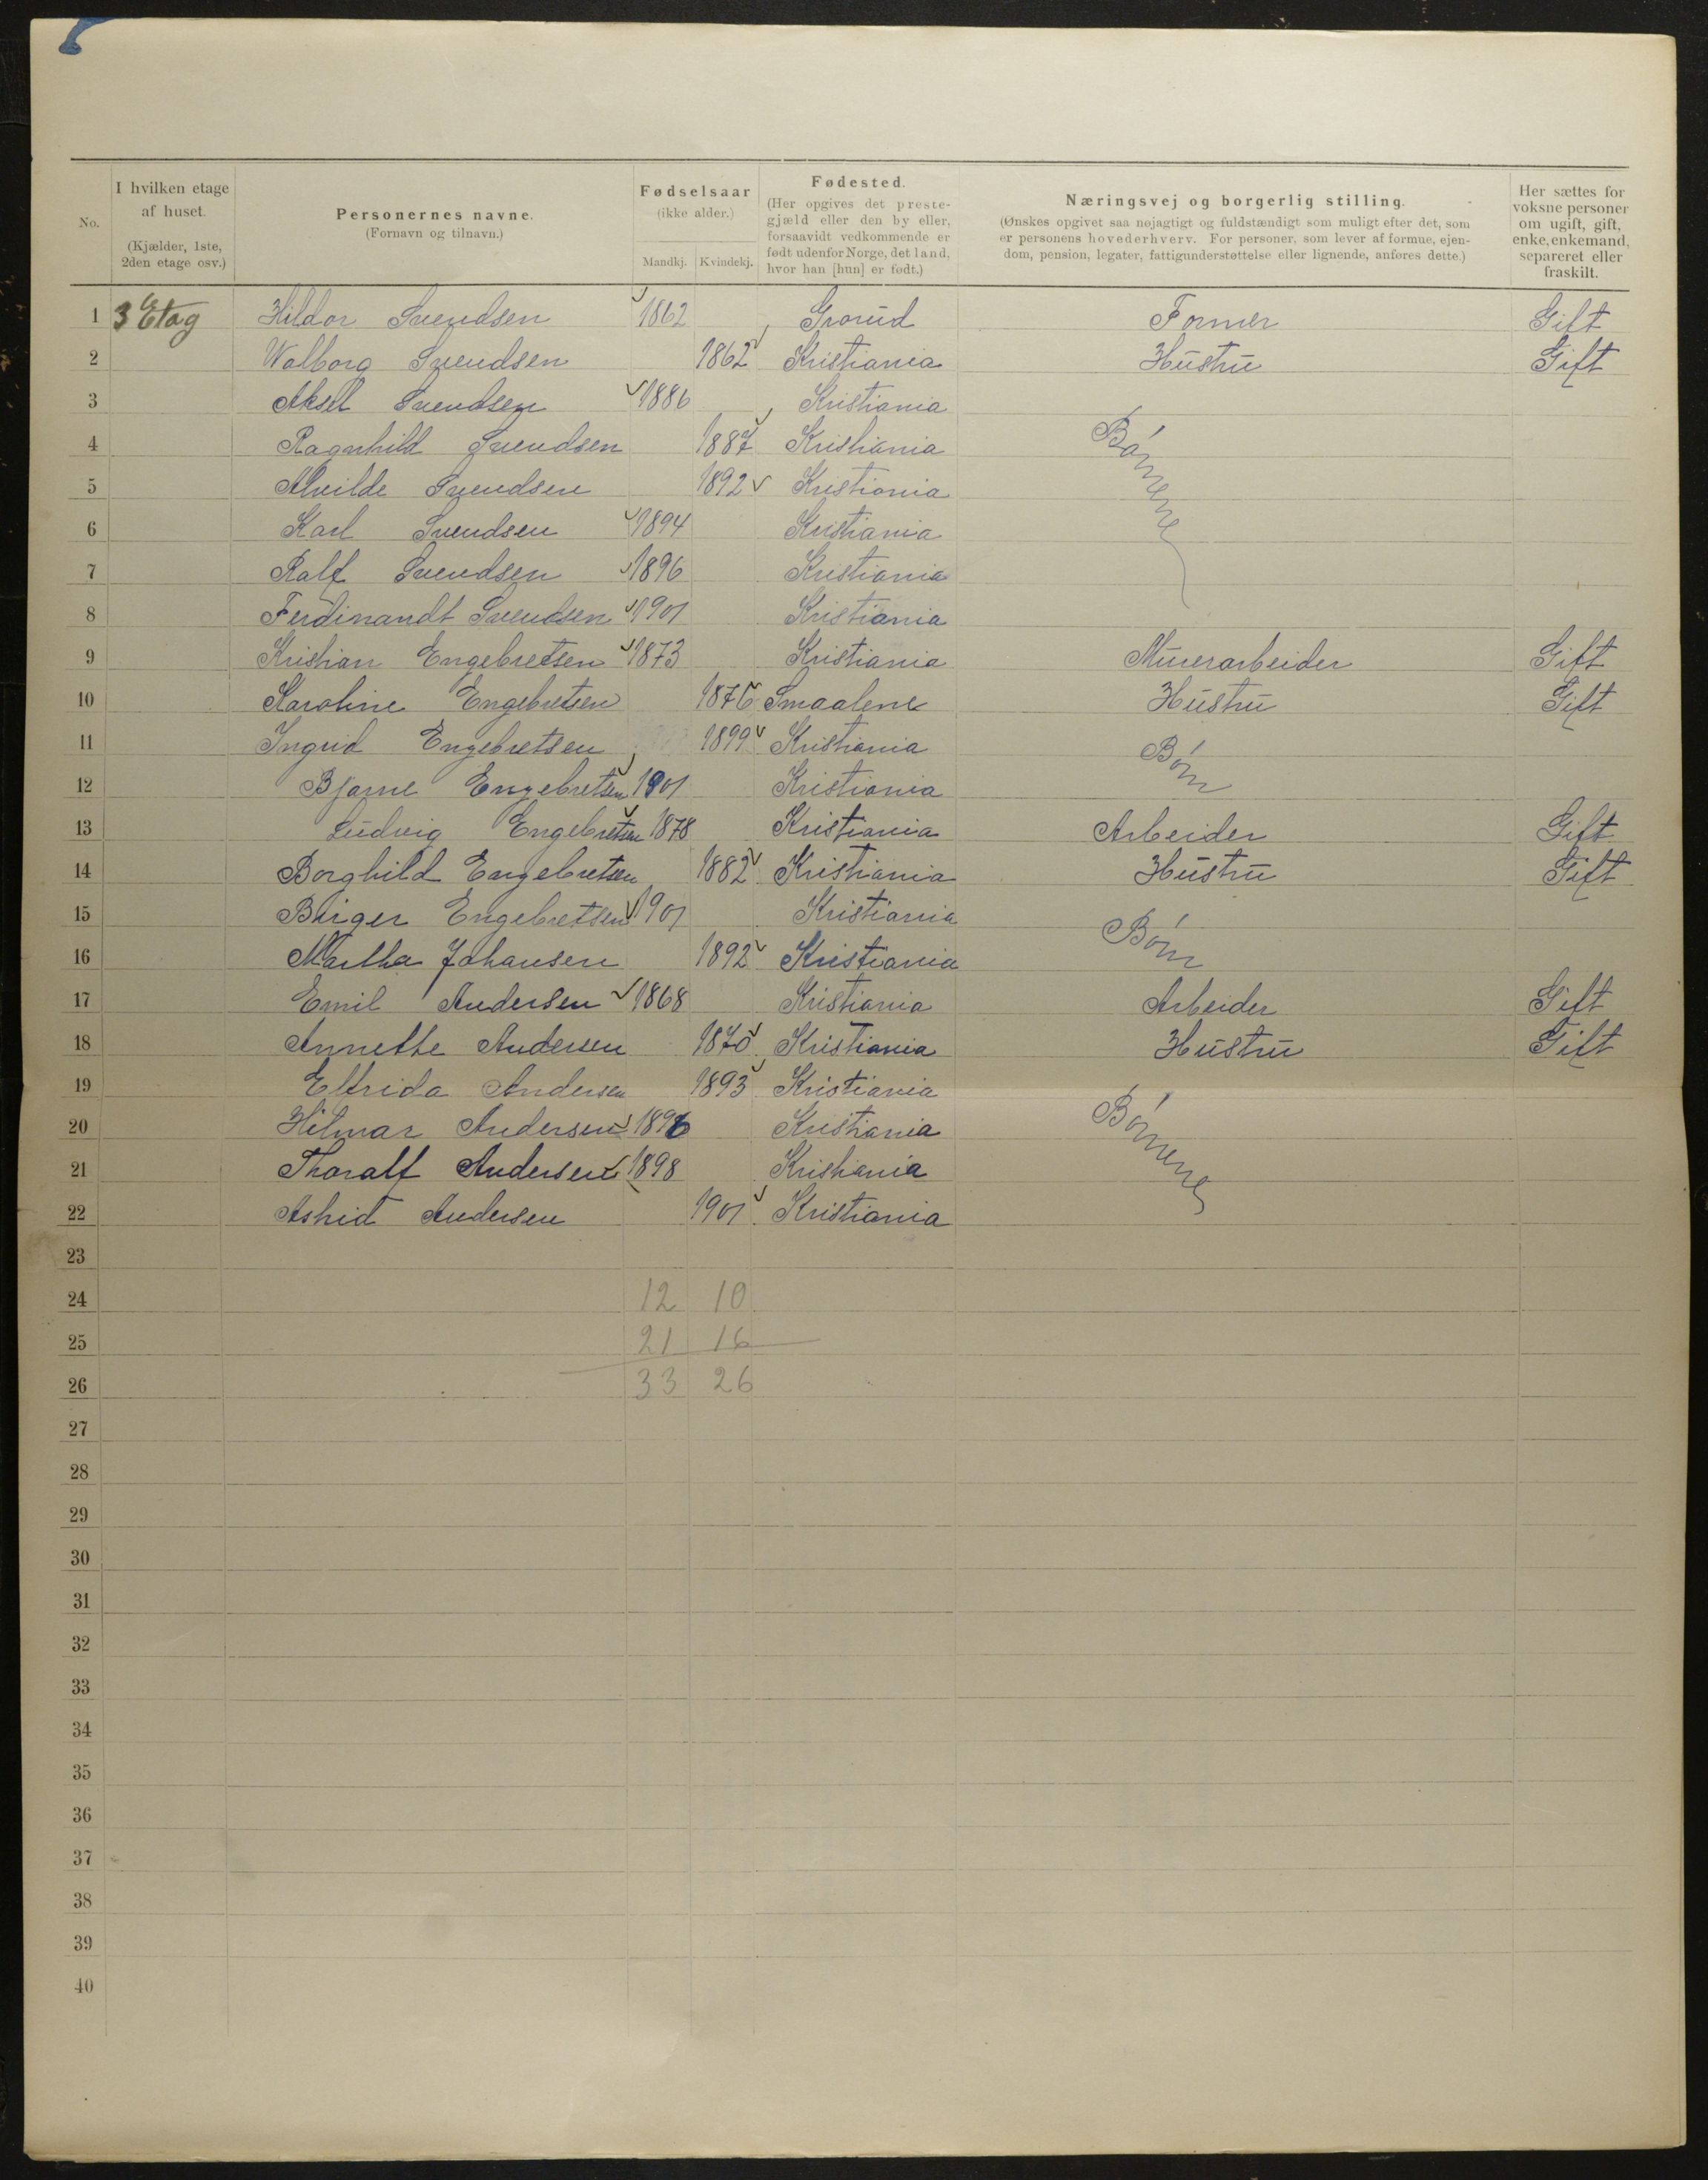 No.
I hvilken etage af huset.
(Kjælder, 1ste, 2den etage osv.)
Personernes navne.
(Fornavn og tilnavn.)
Fødselsaar
(ikke alder.)
Mandkj. Kvindekj.
Fødested.
(Her opgives det prestegjæld eller den by eller, forsaavidt vedkommende er født udenfor Norge, det land, hvor han [hun] er født.)
Næringsvej og borgerlig stilling.
(Ønskes opgivet saa nøjagtigt og fuldstændigt som muligt efter det, som er personens hovederhverv. For personer, som lever af formue, ejendom, pension, legater, fattigunderstøttelse eller lignende, anføres dette.)
Her sættes for voksne personer om ugift, gift, enke, enkemand, separeret eller fraskilt.
1 3 Etag Hildor Svendsen 1862 Grorud Former Gift
2 Walborg Svendsen 1862 Kristiania Hustru Gift
3 Aksel Svendsen 1886 Kristiania
4 Ragnhild Svendsen 1887 Kristiania Børnene
5 Alvilde Svendsen 1892 Kristiania
6 Karl Svendsen 1894 Kristiania
7 Ralf Svendsen 1896 Kristiania
8 Ferdinandt Svendsen 1901 Kristiania
9 Kristian Engebretsen 1873 Kristiania Murerarbeider Gift
10 Karoline Engebretsen 1876 Smaalene Hustru Gift
11 Ingrid Engebretsen 1899 Kristiania Børn
12 Bjarne Engebretsen 1901 Kristiania
13 Ludvig Engebretsen 1878 Kristiania Arbeider Gift
14 Borghild Engebretsen 1882 Kristiania Hustru Gift
15 Birger Engebretsen 1901 Kristiania Børn
16 Martha Johansen 1892 Kristiania
17 Emil Andersen 1868 Kristiania Arbeider Gift
18 Annette Andersen 1870 Kristiania Hustru Gift
19 Elfrida Andersen 1893 Kristiania
20 Hilmar Andersen 1896 Kristiania Børnene
21 Thoralf Andersen 1898 Kristiania
22 Astrid Andersen 1901 Kristiania
23
24 12 10
25 21 16
26 33 26
27
28
29
30
31
32
33
34
35
36
37
38
39
40